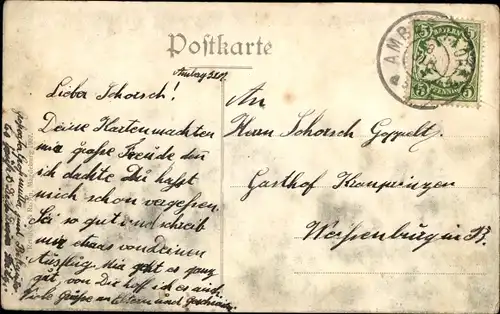 Postkarte
BAYERN
5 5
PFENNIG
5 5
AMB
Lieber Schorsch!
Deine Karten machten
mir große Freude den
ich dachte Du hasst
mich schon vergessen.
Sei so gut und schreib
mir etwas von Deinen
Ausflug. Mir geht es ganz
gut, von Dir hoff ich es auch.
Viele Grüße an Eltern und Geschwister
An
Herrn Schorsch Goppelt.
Gasthof Kronprinzen
Weißenburg in B.